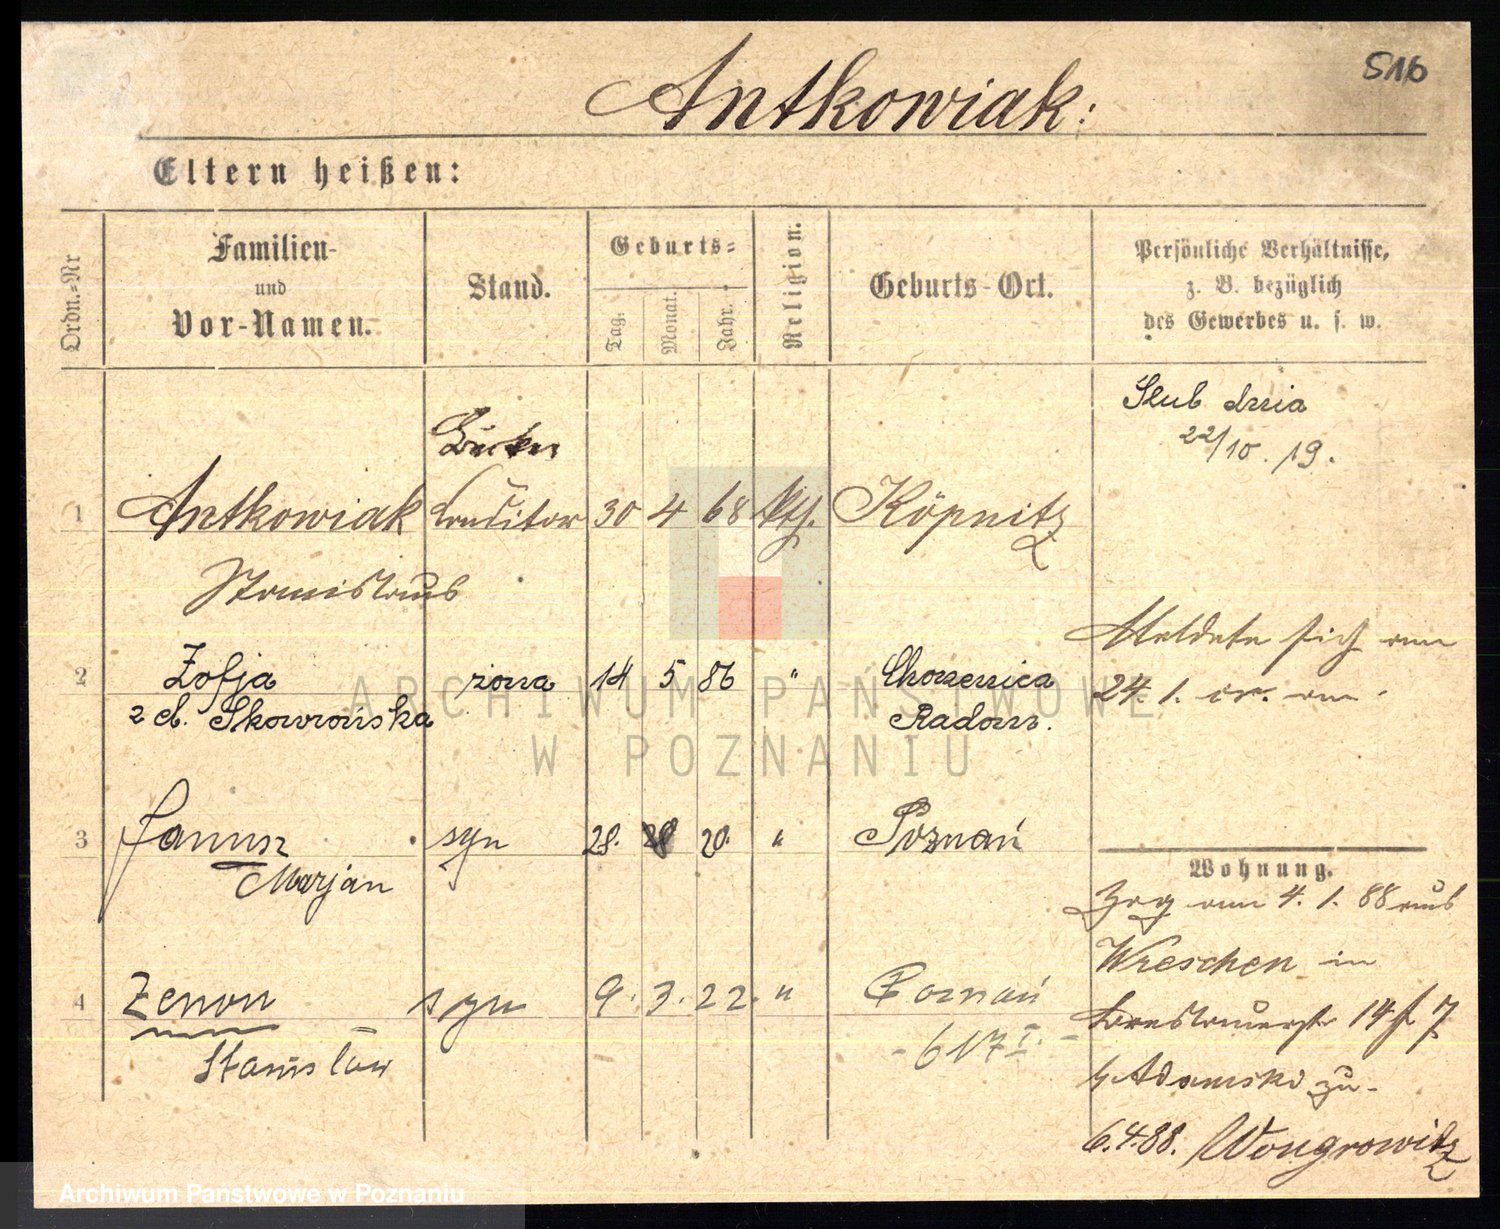 516
Antkowiak:
Eltern heißen:
Ordn.-Nr
Familien-
und
Vor-Namen.
Stand.
Geburts-
Tag.
Monat.
Jahr.
Religion.
Geburts-Ort.
Persönliche Verhältnisse,
z. B. bezüglich
des Gewerbes u. s. w.
Slub dnia
22/10. 19.
Bäcker
1 Antkowiak Conditor 30 4 68 kth. Köpnitz
Stanislaus
Meldete sich am
2 Zofja żona 14 5 86 " Chorzenica
24. 1. cr. an
z d. Skowrońska Radom.
3 Janusz syn 28. 20. " Poznań
Marjan
Wohnung.
Zog am 4. 1. 88 aus
Wreschen in
4 Zenon syn 9. 3. 22. " Poznań
Stanisław
- 617 I. -
14 7
b Adamski zu-
6.4.88. Wongrowitz
ARCHIWUM PAŃSTWOWE
W POZNANIU
Archiwum Państwowe w Poznaniu